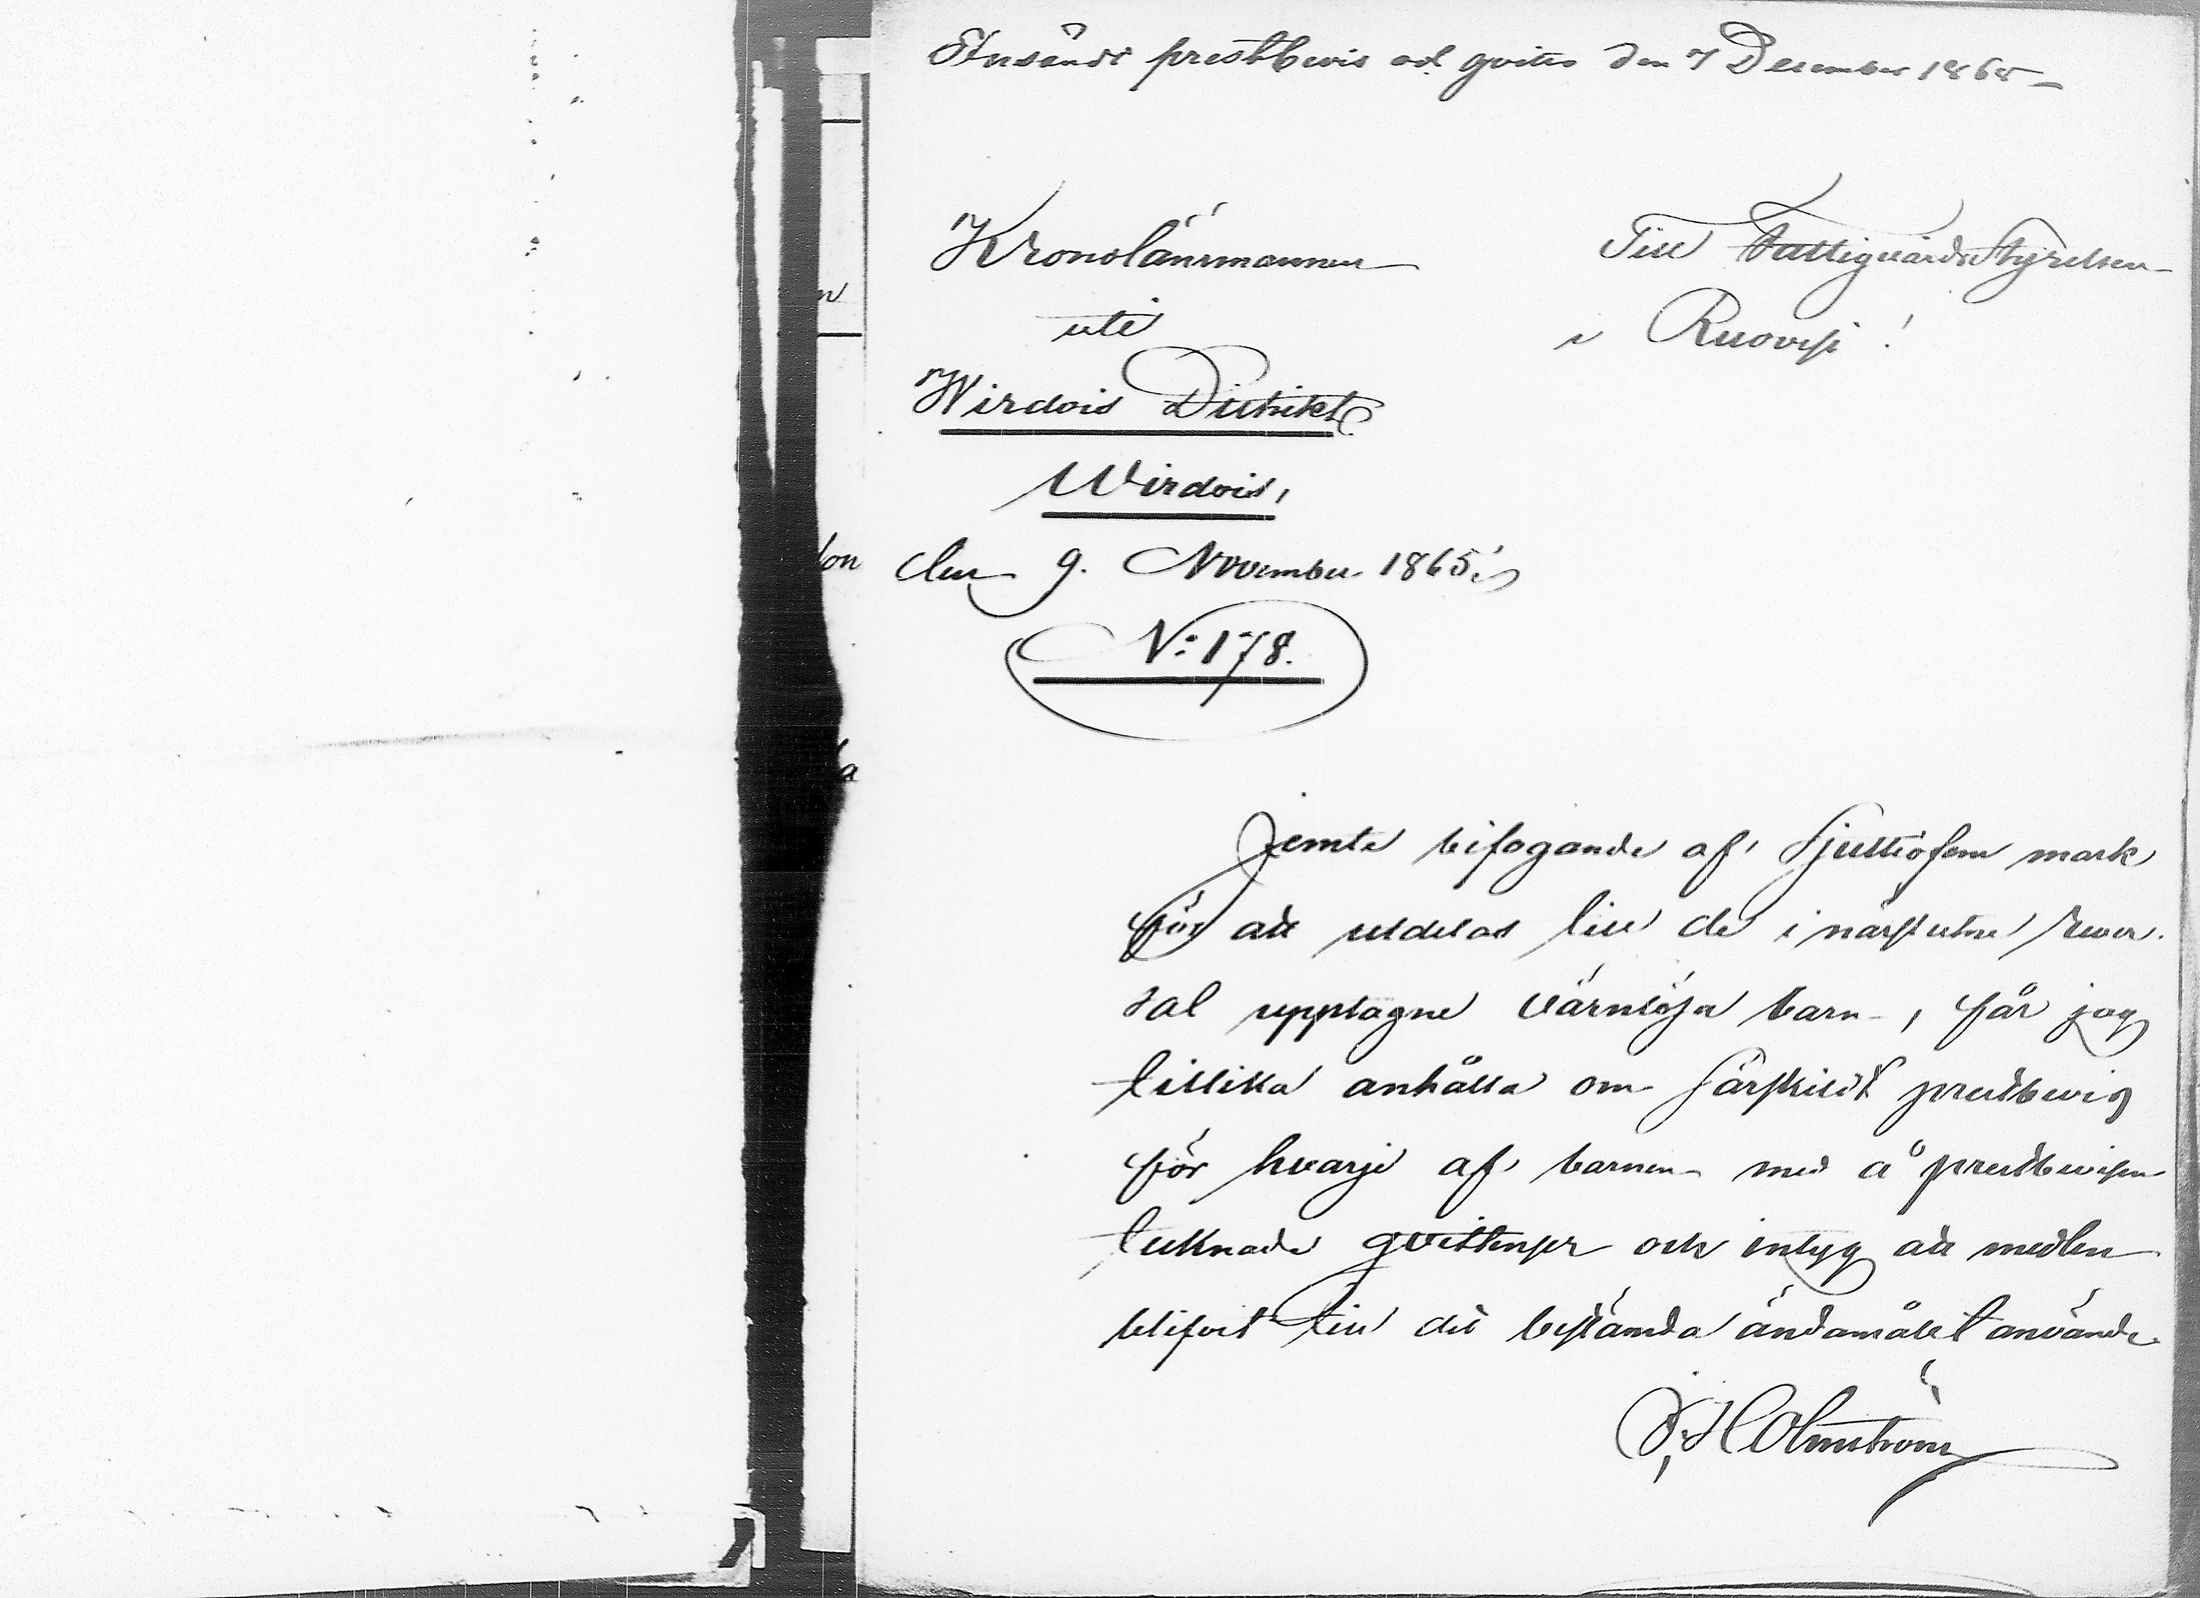 Afsände prestbevis och qvitto den 7 December 1865
Kronolänsmannen
uti
Wirdois Distrikt
Wirdois,
den 9. November 1865.
N: 178.
Till Fattigvårds Styrelsen
i Ruovesi!
Jemte bifogande af Sjuttiofem mark
för att utdelas till de i närslutne rever-
sal upptagne värnlösa barn, får jag
tillika anhålla om särskildt prestbevis
för hvarje af barnen med å prestbevisen
tecknade qvittenser och intyg att medlen
blifvit till det bestämda ändamålet använde.
Holmström